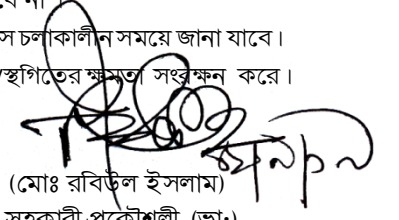 স চলাকালীন সময়ে জানা যাবে।
স্থগিতের ক্ষমতা সংরক্ষন করে।
(মোঃ রবিউল ইসলাম)
সহকারী প্রকৌশলী (ভাঃ)